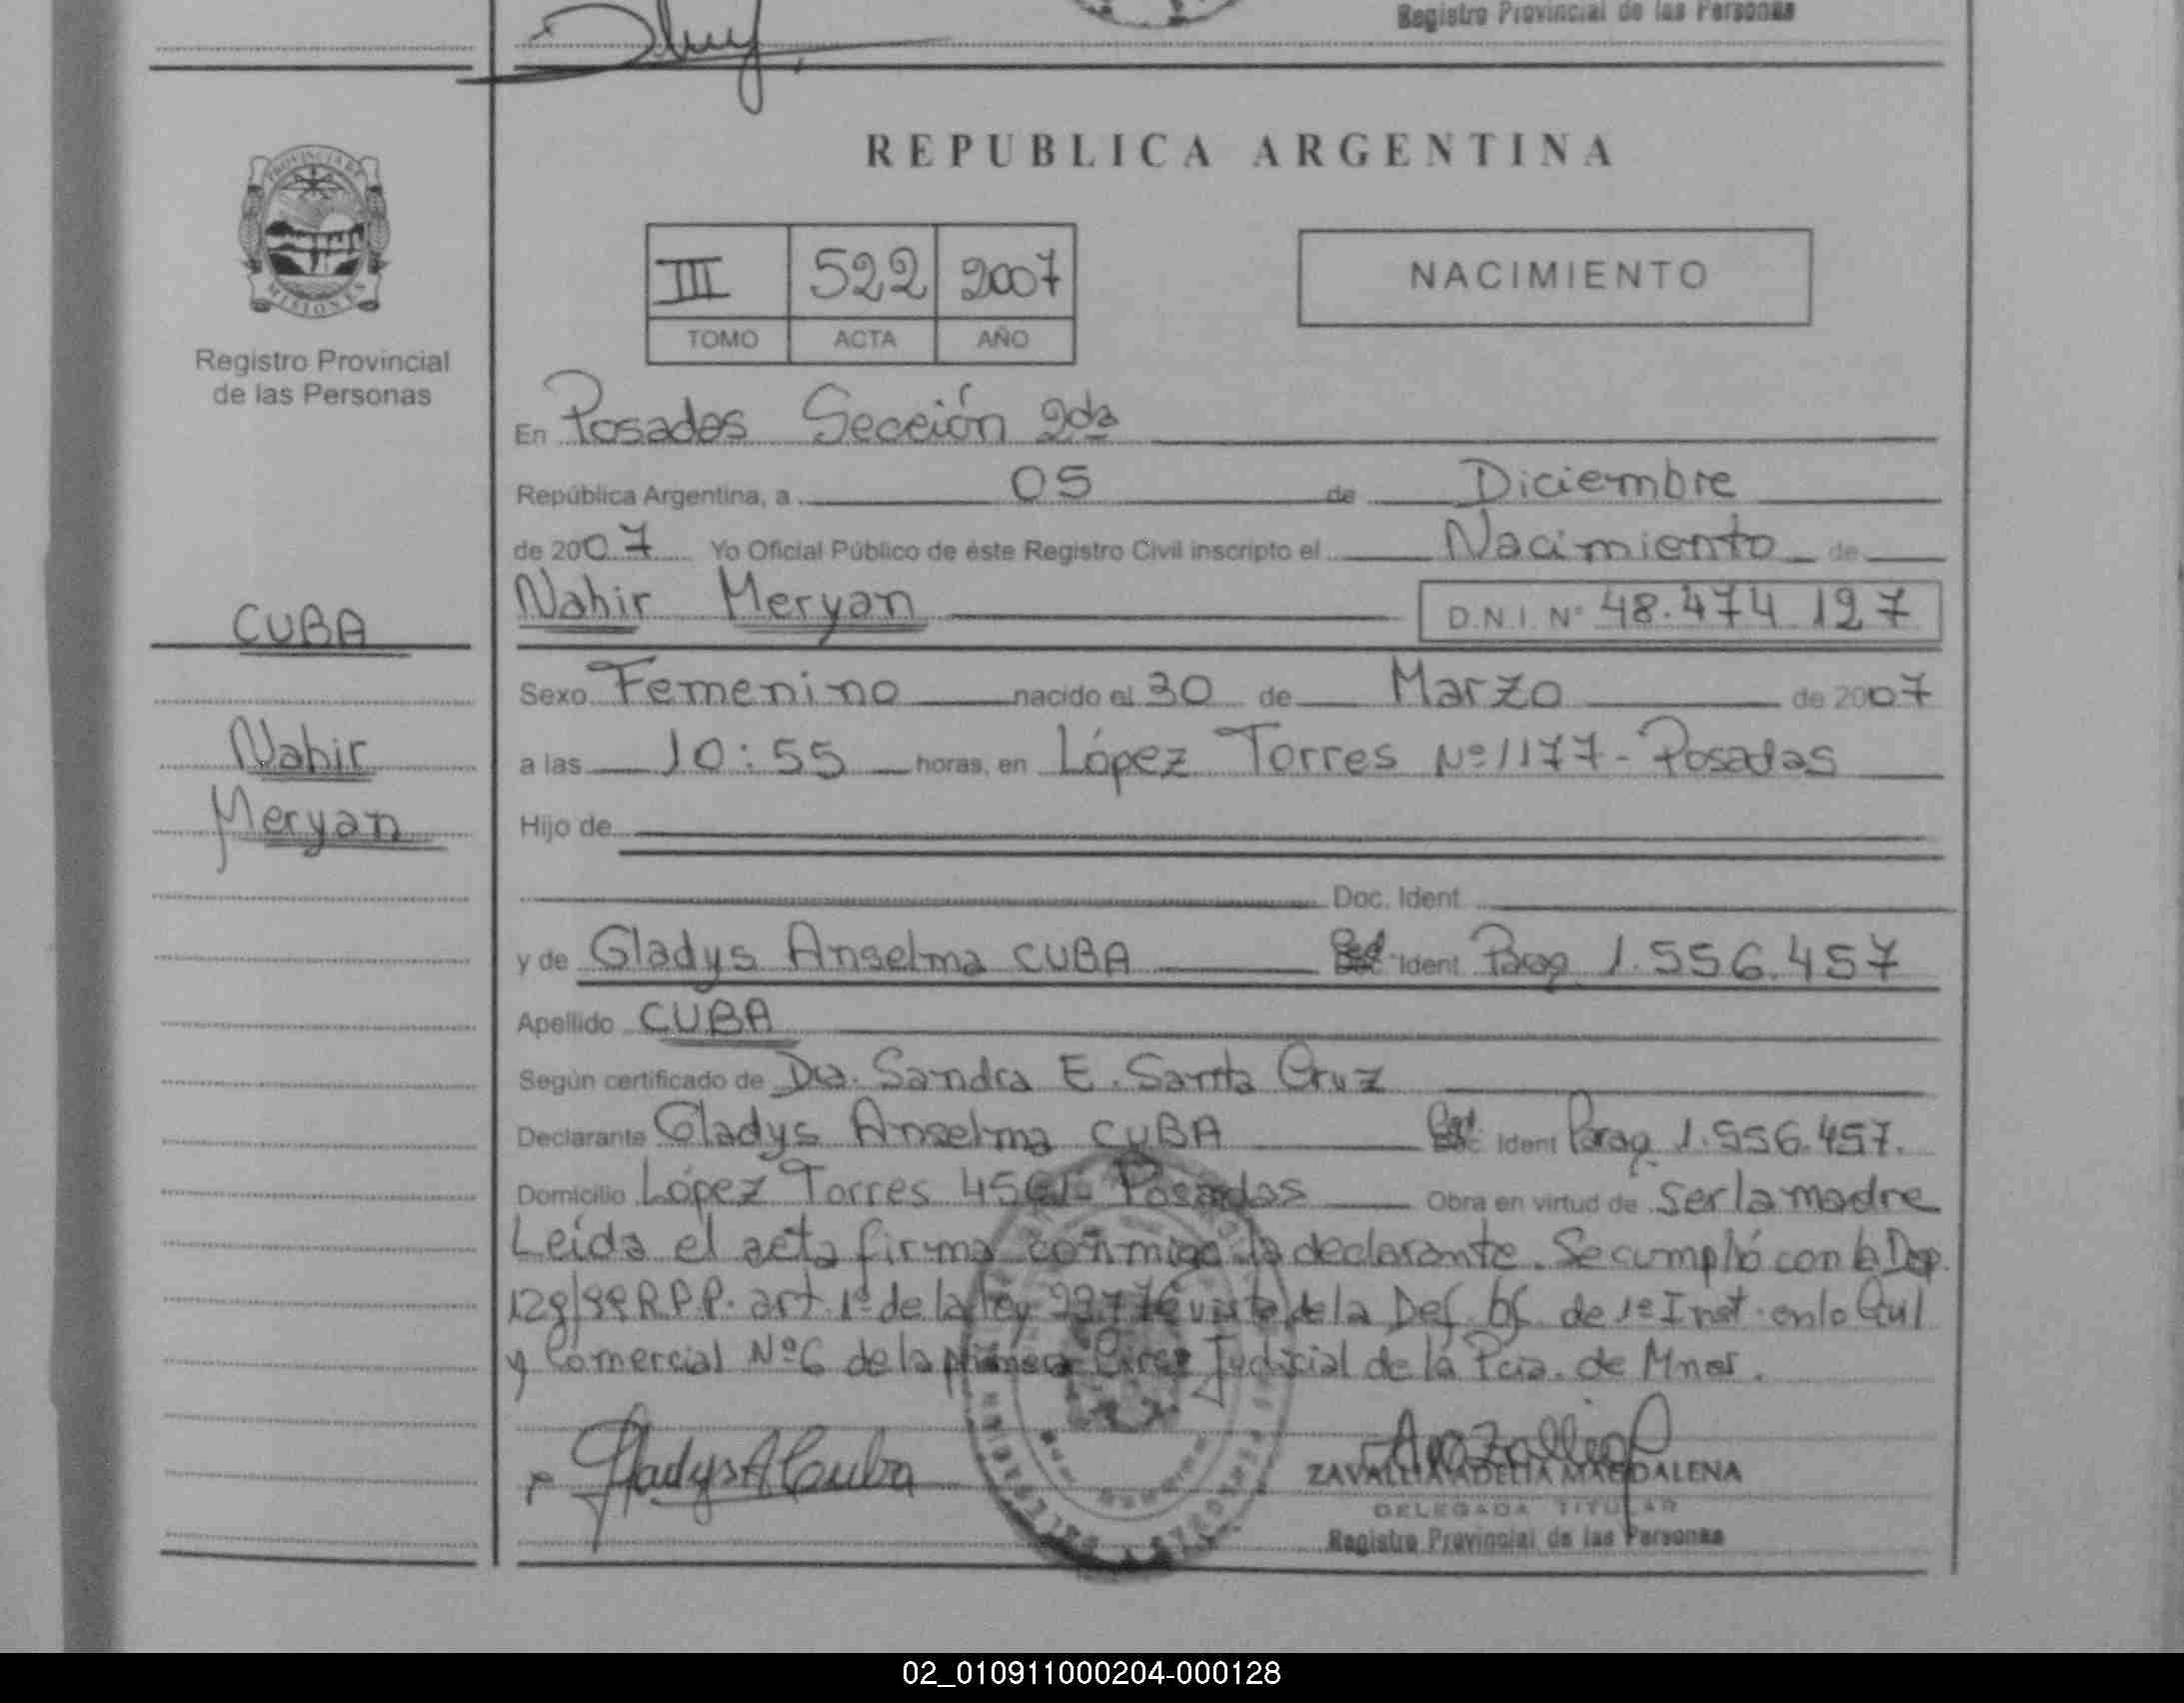 Registro Provincial de las Personas
REPUBLICA ARGENTINA
PROVINCIA DE
MISIONES
III 522 2007
TOMO ACTA AÑO
NACIMIENTO
Registro Provincial
de las Personas
En Posadas Sección 2da
República Argentina, a 05 de Diciembre
de 2007 Yo Oficial Público de éste Registro Civil inscripto el Nacimiento de
CUBA
Nahir Meryan D.N.I. Nº 48.474.127
Sexo Femenino nacido el 30 de Marzo de 2007
Nahir
a las 10:55 horas, en López Torres Nº 1177 - Posadas
Meryan
Hijo de
Doc. Ident.
y de Gladys Anselma CUBA Ident Parag 1.556.457
Apellido CUBA
Según certificado de Dra. Sandra E. Santa Cruz
Declarante Gladys Anselma CUBA Ident Parag. 1.556.457.
Domicilio López Torres Posadas Obra en virtud de Ser la madre
Leída el acta firma conmigo la declarante. Se cumplió con la Dsp.
128/99 R.P.P. art. 1º de la ley vista de la Def. Of. de 1º Inst. en lo Civil
y Comercial Nº 6 de la primera Circ. Judicial de la Pcia. de Mnes.
Gladys A Cuba
ZAVALLIA ADELIA MAGDALENA
DELEGADA TITULAR
Registro Provincial de las Personas
02_010911000204-000128